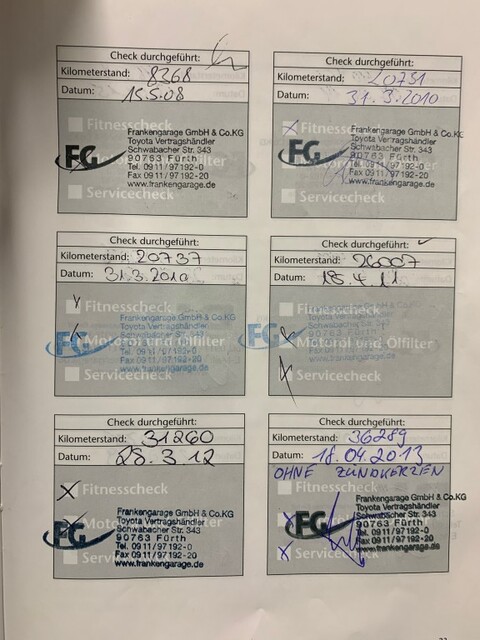 Check durchgeführt:
Kilometerstand: 8368
Datum: 15.5.08
Fitnesscheck
Frankengarage GmbH & Co.KG
Toyota Vertragshändler
Schwabacher Str. 343
FG 90763 Fürth
Tel. 0911/97192-0
Fax 0911/97192-20
www.frankengarage.de
Servicecheck
Check durchgeführt:
Kilometerstand: 20751
Datum: 31.3.2010
Fitnesscheck
Frankengarage GmbH & Co.KG
Toyota Vertragshändler
Schwabacher Str. 343
FG 90763 Fürth
Tel. 0911/97192-0
Fax 0911/97192-20
www.frankengarage.de
Servicecheck
Check durchgeführt:
Kilometerstand: 20737
Datum: 31.3.2010
Fitnesscheck
Frankengarage GmbH & Co.KG
Toyota Vertragshändler
Schwabacher Str. 343
FG Motoröl und Ölfilter
Tel. 0911/97192-0
Fax 0911/97192-20
www.frankengarage.de
Servicecheck
Check durchgeführt:
Kilometerstand: 26007
Datum: 18.4.11
Fitnesscheck
Frankengarage GmbH & Co.KG
Toyota Vertragshändler
Schwabacher Str. 343
FG Motoröl und Ölfilter
Tel. 0911/97192-0
Fax 0911/97192-20
www.frankengarage.de
Servicecheck
Check durchgeführt:
Kilometerstand: 31260
Datum: 28.3.12
Fitnesscheck
Frankengarage GmbH & Co.KG
Toyota Vertragshändler
Schwabacher Str. 343
FG 90763 Fürth
Tel. 0911/97192-0
Fax 0911/97192-20
www.frankengarage.de
Check durchgeführt:
Kilometerstand: 36289
Datum: 18.04.2013
OHNE ZÜNDKERZEN
Fitnesscheck
Frankengarage GmbH & Co.KG
Toyota Vertragshändler
Schwabacher Str. 343
FG 90763 Fürth
Tel. 0911/97192-0
Fax 0911/97192-20
www.frankengarage.de
Servicecheck